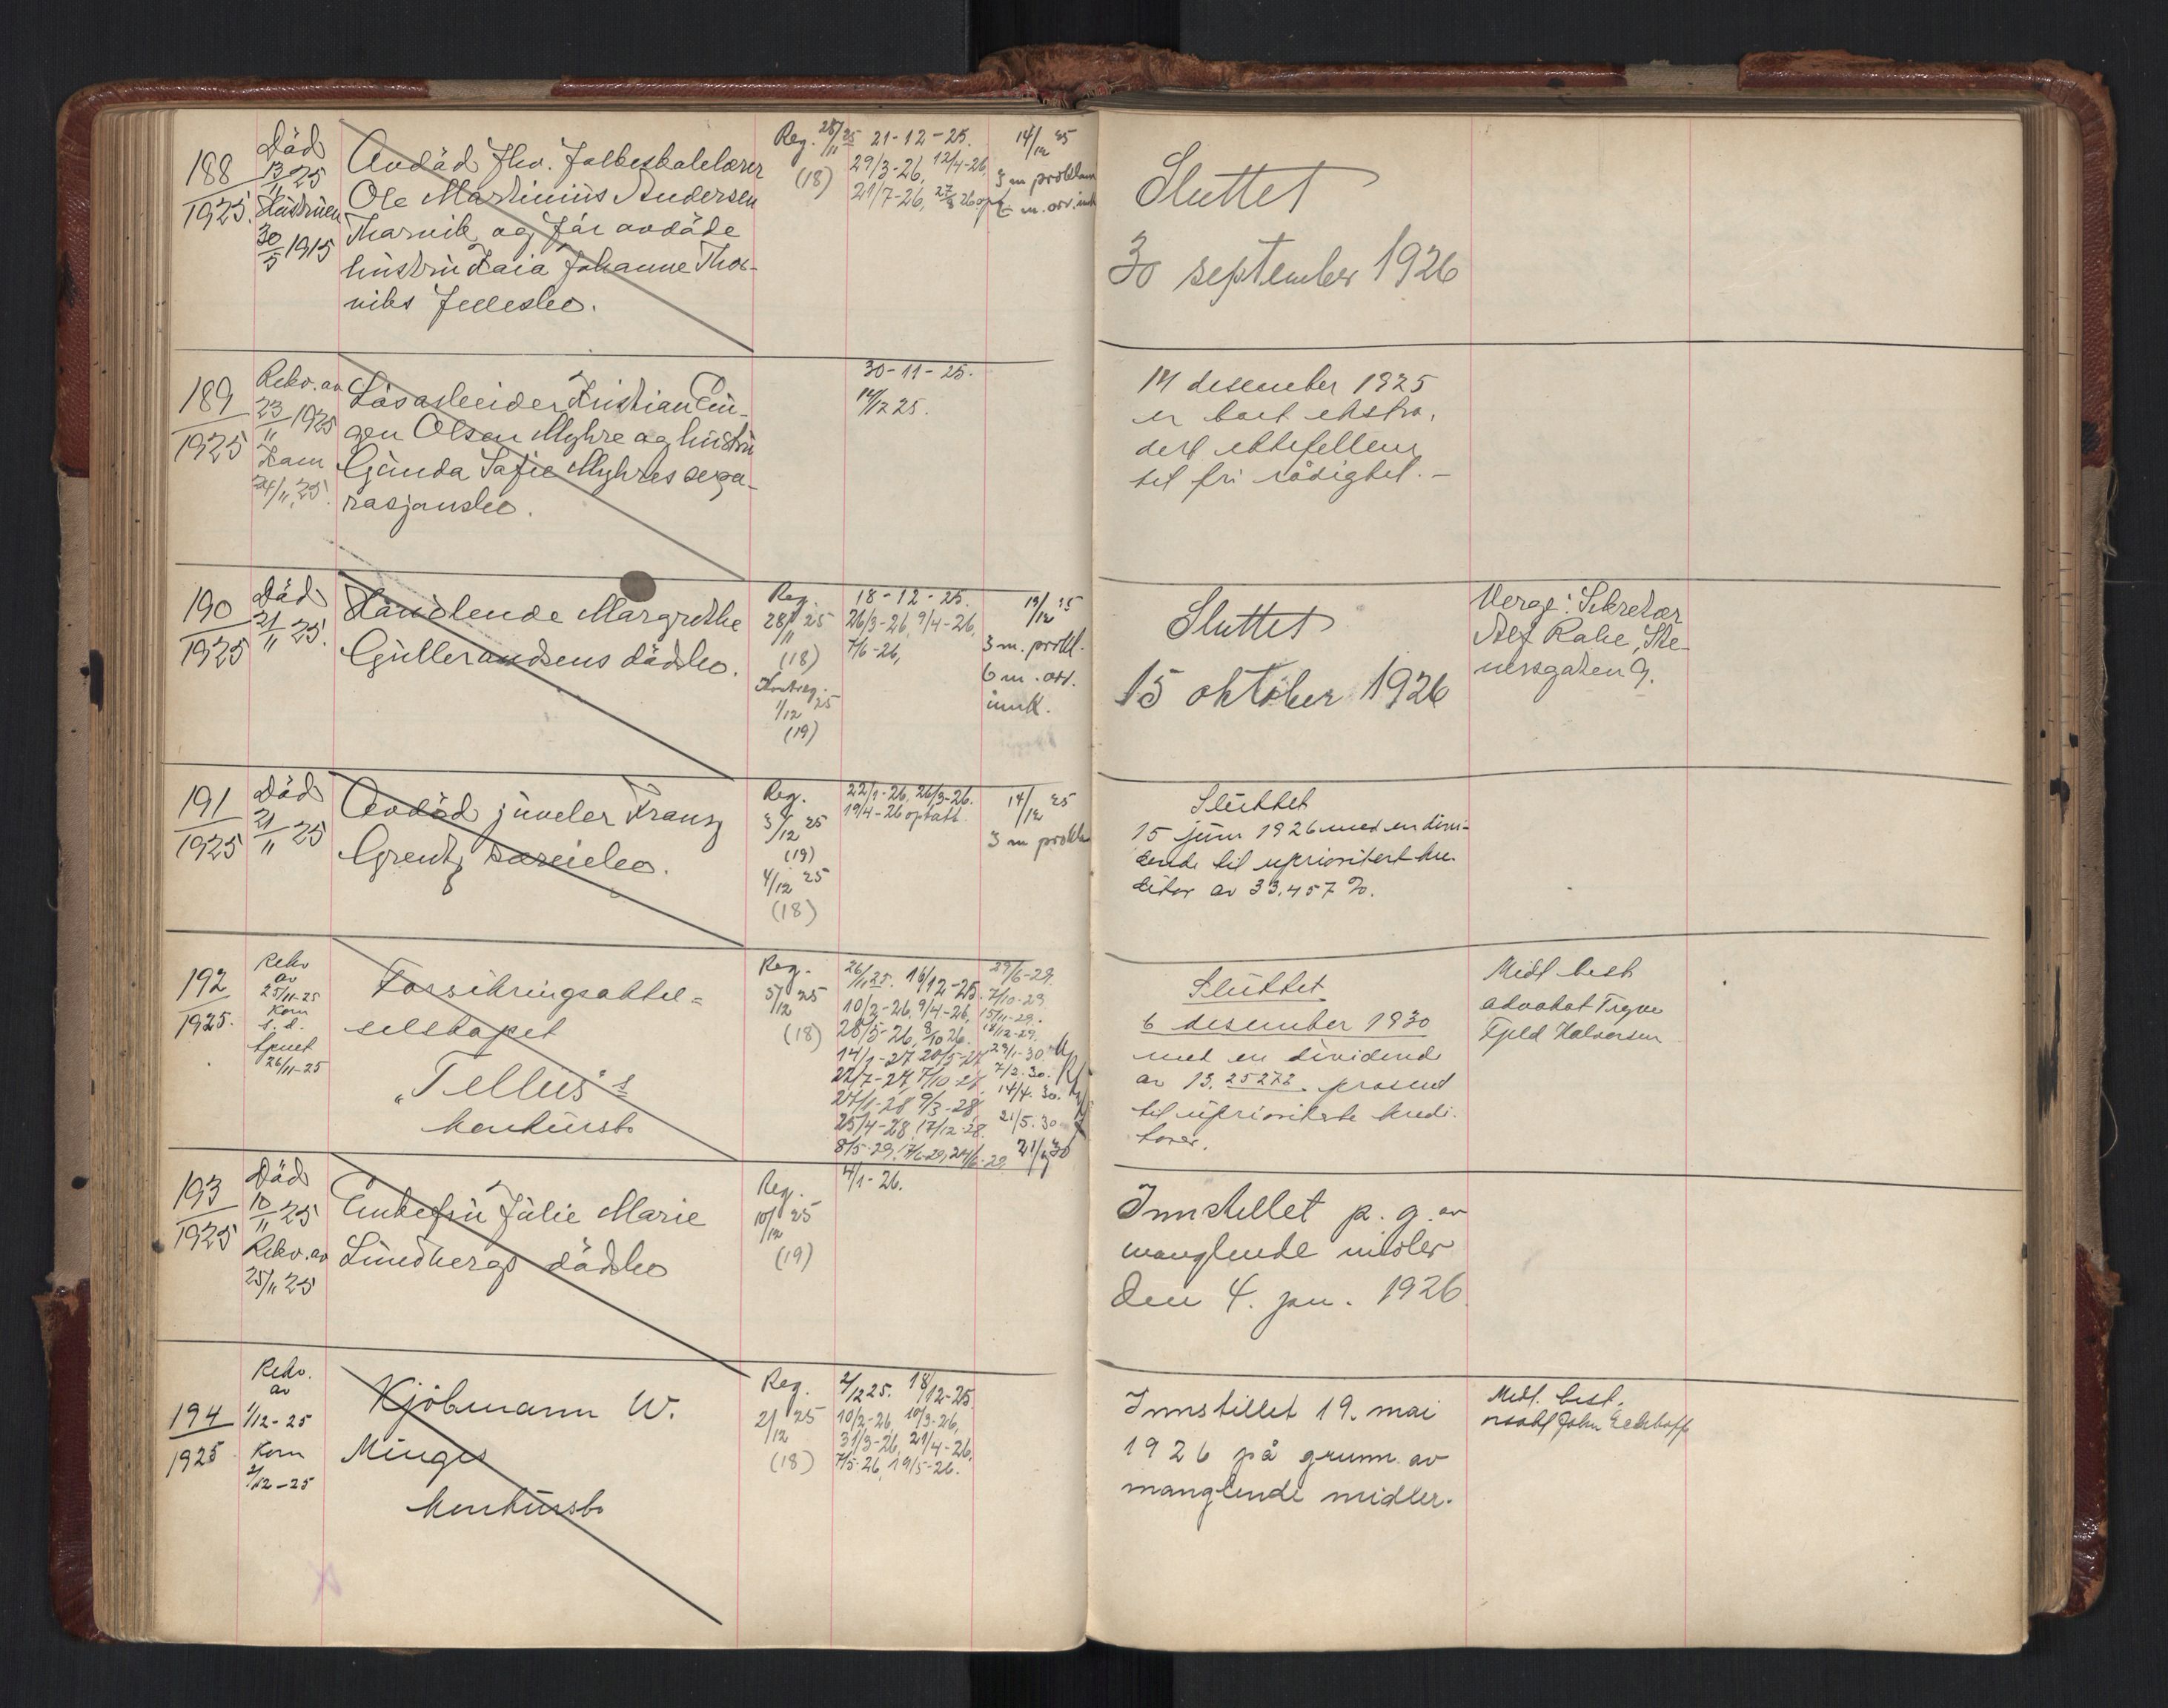 188
1925.
Död
13/11 25
Hustruen
30/5 1915
Avdöd fhv. folkeskolelærer
Ole Martinius Andersen
Thorvik og för avdöde
hustru Kaia Johanne Thor-
viks fellesbo.
Reg. 28/11 25
(18)
21-12-25.
29/3-26, 12/4-26,
21/7-26, 27/8 26 opt
14/12 25
3 m proklam
Sluttet
30 september 1926
189
1925
Rekv. av
23/11 1925
Kom
24/11 25.
Lösarbeider Kristian Eu-
gen Olsen Myhre og hustru
Gunda Sofie Myhres sepa-
rasjonsbo.
30-11-25.
14/12 25.
14 desember 1925
er boet ekstra-
dert ektefellene
til fri rådighet. -
190
1925
Död
21/11 25.
Handlende Margrethe
Gulbrandsens dödsbo.
Reg.
28/11 25
(18)
1/12 25
(19)
18-12-25.
26/3-26, 9/4-26,
7/6-26,
3 m. prokl.
6 m. arv.
innk.
Sluttet
15 oktober 1926
Verge: Sekretær
Alf Rake, Ste-
nersgaten 9.
191
1925
Död
21/11 25
Avdöd juveler Franz
Grentz særeiebo.
Reg.
3/12 25
(19)
4/12 25
(18)
22/1-26, 26/3-26.
19/4-26 optatt.
14/12 25
3 m prokla
Sluttet
15 juni 1926 med en divi-
dende til uprioritert kre-
ditor av 33.457 %.
192
1925.
Rekv
av
25/11-25
Kom
s. d.
åpnet
26/11-25
Forsikringsaktie=
selskapet
"Tellus" s
konkursbo
Reg.
5/12 25
(18)
26/11 25. 16/12-25.
10/2-26, 9/4-26,
28/5-26, 8/10 26.
14/1-27 20/5-27
22/7-27, 7/10-27.
27/1-28 9/3-28,
25/4-28, 17/12-28.
29/6-29.
7/10-29
15/11-29.
18/12-29.
29/1-30.
7/2.30.
14/4.30.
21/5.30
Sluttet
6 desember 1930
med en dividende
av 13.25272 prosent
til uprioriterte kredi-
torer.
Midl best
advokat Trygve
Fjeld Halvorsen
193
1925
Död
10/11 25
Rekv. av
25/11 25
Enkefru Julie Marie
Lundbergs dödsbo
Reg.
10/12 25
(19)
4/1-26.
Innstillet p. g. av
manglende midler
den 4. jan. 1926.
194
1925
Rekv.
av
1/12-25
Kom
2/12-25
Kjöbmann W.
Minges
konkursbo
Reg.
21/12 25
(18)
2/12 25. 18/12-25.
10/2-26, 10/3-26,
31/3-26, 21/4-26,
7/5-26, 19/5-26.
Innstillet 19. mai
1926 på grunn av
manglende midler.
Midl. best.
o.r.sakf John Eckhoff